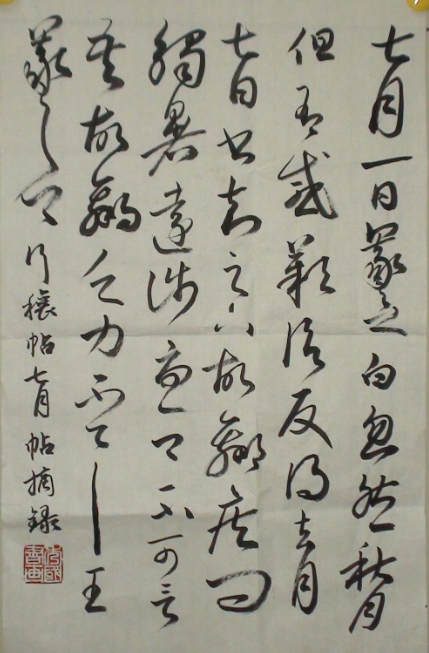 七月一日羲之白忽然秋月
但有感歎信反得去月
七日書知足下故羸疾問
觸暑遠涉憂卿不可言
吾故羸乏力不具王
羲之白 行穰帖七月帖摘録